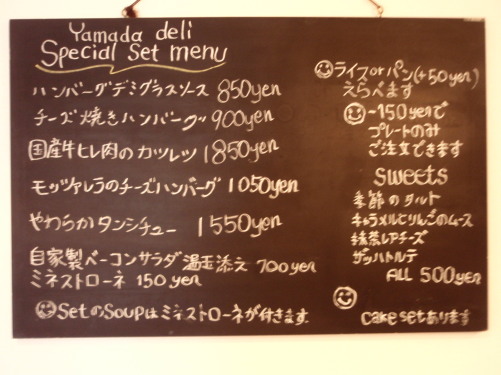 Yamada deli
Special Set menu
ハンバーグデミグラスソース 850yen
チーズ焼きハンバーグ 900yen
国産牛ヒレ肉のカツレツ 1850yen
モッツァレラのチーズハンバーグ 1050yen
やわらかタンシチュー 1550yen
自家製ベーコンサラダ 温玉添え 700yen
ミネストローネ 150yen
SetのSoupはミネストローネが付きます。
ライスorパン(+50yen)
えらべます
-150yenで
プレートのみ
ご注文できます
sweets
季節のタルト
キャラメルとりんごのムース
抹茶レアチーズ
ザッハトルテ
ALL 500yen
cake setあります